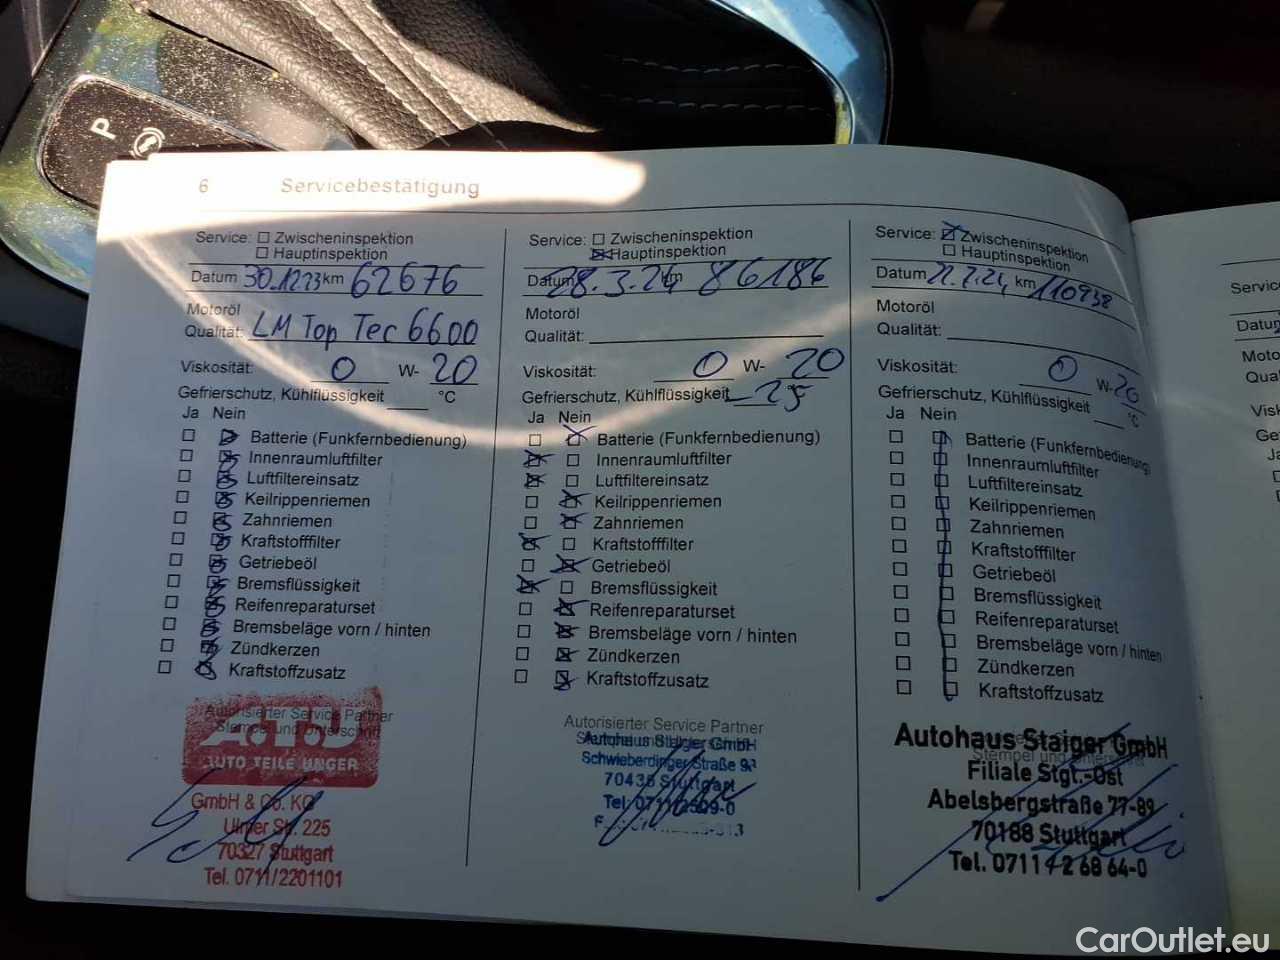 P
6 Servicebestätigung
Service: Zwischeninspektion
Hauptinspektion
Datum 30.12.23 km 62676
Motoröl
Qualität: LM Top Tec 6600
Viskosität: 0 W- 20
Gefrierschutz, Kühlflüssigkeit °C
Ja Nein
Batterie (Funkfernbedienung)
Innenraumluftfilter
Luftfiltereinsatz
Keilrippenriemen
Zahnriemen
Kraftstofffilter
Getriebeöl
Bremsflüssigkeit
Reifenreparaturset
Bremsbeläge vorn / hinten
Zündkerzen
Kraftstoffzusatz
Autorisierter Service Partner
Stempel und Unterschrift
A.T.U
AUTO TEILE UNGER
GmbH & Co. KG
Ulmer Str. 225
70327 Stuttgart
Tel. 0711/2201101
Service: Zwischeninspektion
Hauptinspektion
Datum 28.3.24 km 86186
Motoröl
Qualität:
Viskosität: 0 W- 20
Gefrierschutz, Kühlflüssigkeit -25 °C
Ja Nein
Batterie (Funkfernbedienung)
Innenraumluftfilter
Luftfiltereinsatz
Keilrippenriemen
Zahnriemen
Kraftstofffilter
Getriebeöl
Bremsflüssigkeit
Reifenreparaturset
Bremsbeläge vorn / hinten
Zündkerzen
Kraftstoffzusatz
Autorisierter Service Partner
Autohaus Staiger GmbH
Schwieberdinger Straße
70435 Stuttgart
Tel
Service: Zwischeninspektion
Hauptinspektion
Datum 22.7.24 km 110938
Motoröl
Qualität:
Viskosität: 0 W- 20
Gefrierschutz, Kühlflüssigkeit °C
Ja Nein
Batterie (Funkfernbedienung)
Innenraumluftfilter
Luftfiltereinsatz
Keilrippenriemen
Zahnriemen
Kraftstofffilter
Getriebeöl
Bremsflüssigkeit
Reifenreparaturset
Bremsbeläge vorn / hinten
Zündkerzen
Kraftstoffzusatz
Stempel und Unterschrift
Autohaus Staiger GmbH
Filiale Stgt.-Ost
Abelsbergstraße 77-89
70188 Stuttgart
Tel. 0711 / 2 68 64-0
CarOutlet.eu